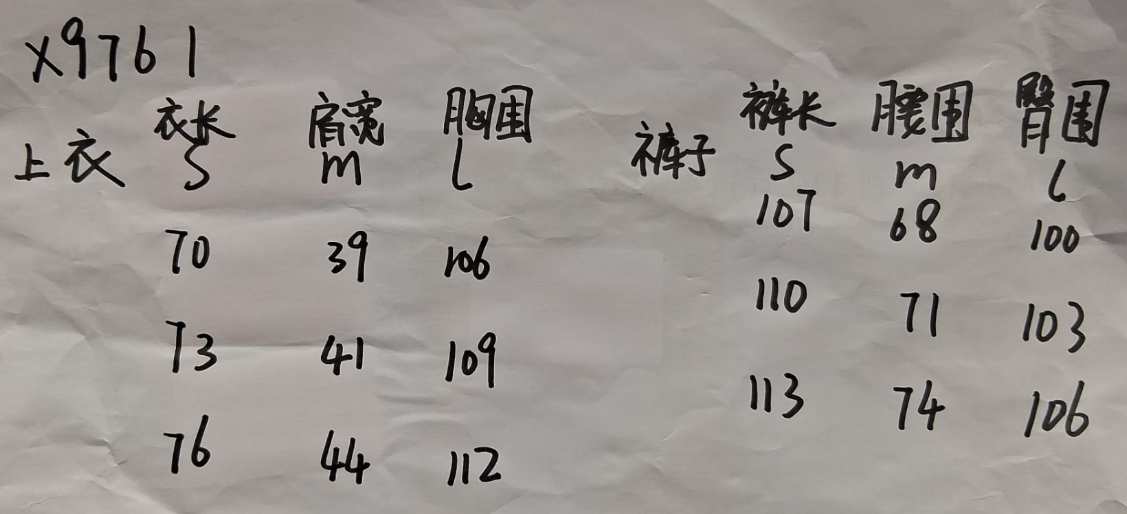 x9761
衣长 肩宽 胸围 裤长 腰围 臀围
上衣 S m L 裤子 S m L
107 68 100
70 39 106
110 71 103
73 41 109
113 74 106
76 44 112